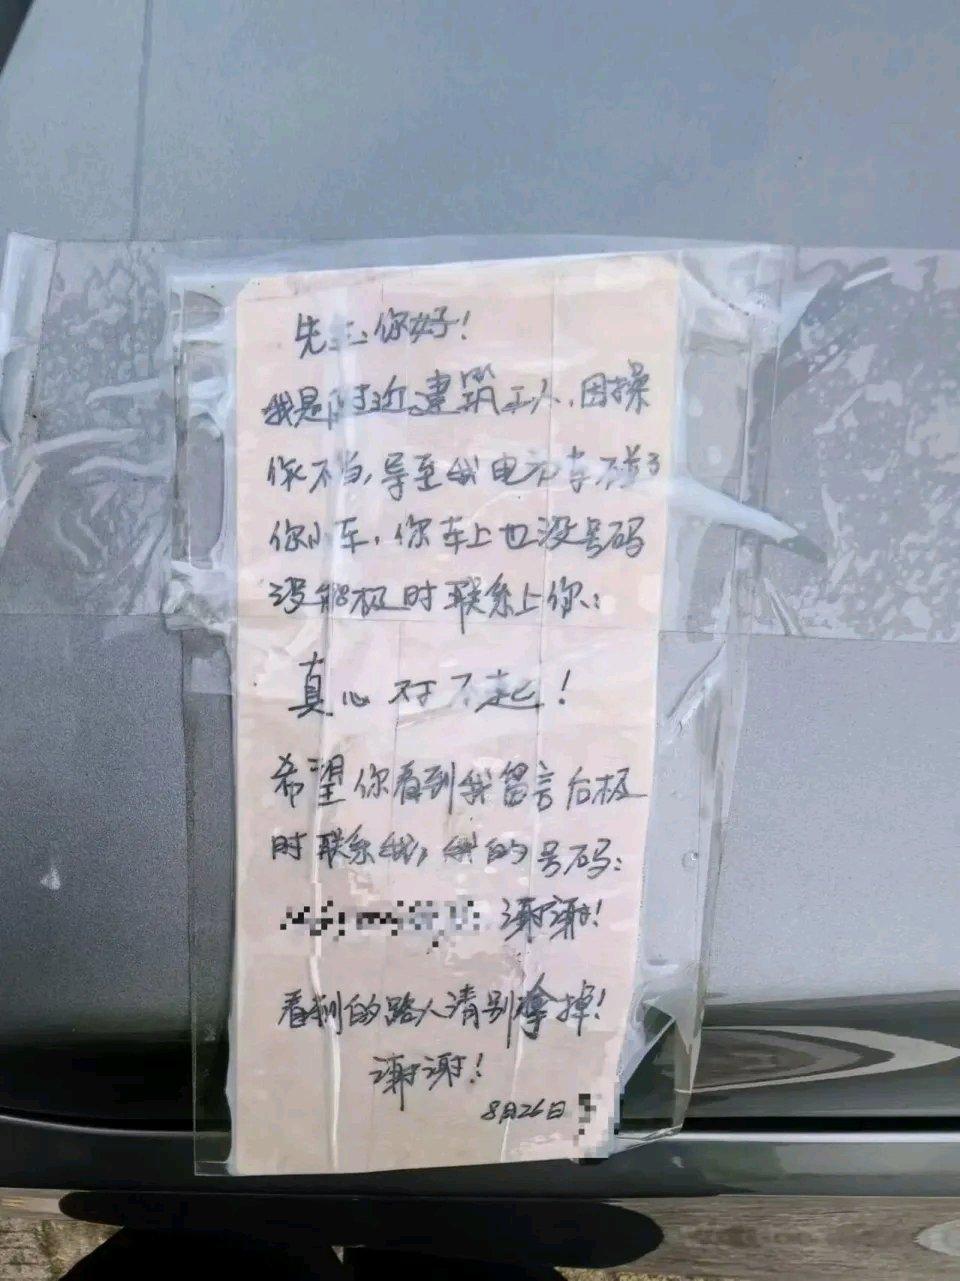 先生你好！
我是附近建筑工人，因操
作不当，导至我电动车碰了
你小车，你车上也没号码
没能极时联系上你：
真心对不起！
希望你看到我留言后极
时联系我，我的号码：
谢谢！
看到的路人请别拿掉！
谢谢！
8月26日